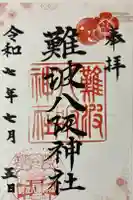 奉拝
難波八阪神社
難波
神社
令和七年七月五日